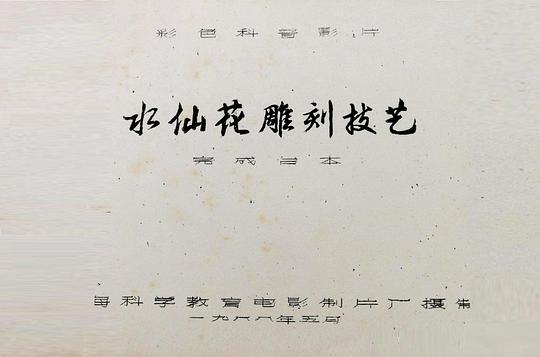 彩色科普影片
水仙花雕刻技艺
完成台本
海科学教育电影制片厂摄制
一九八八年五月